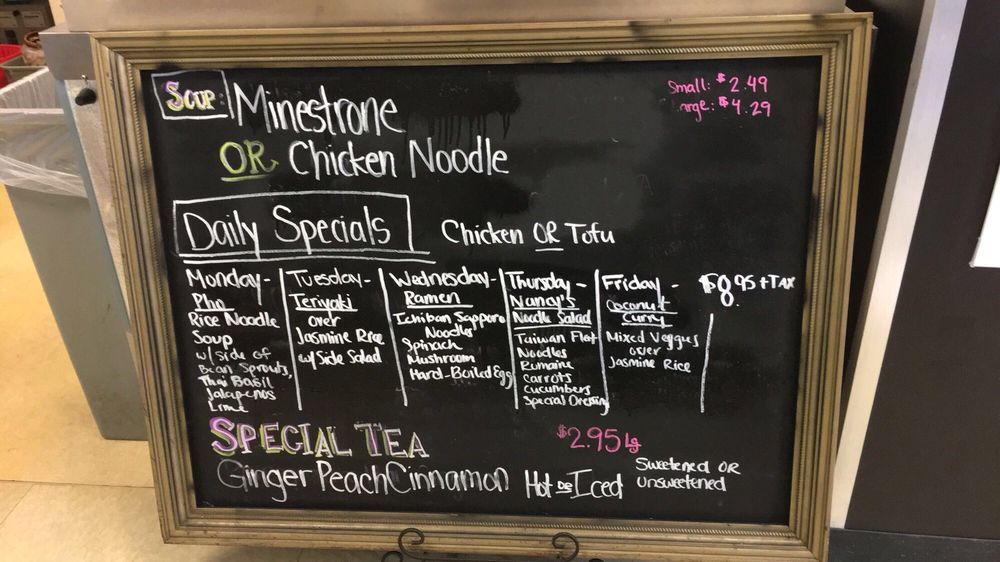 SOUP: Minestrone
OR Chicken Noodle
Small: $2.49
Large: $4.29
Daily Specials
Chicken OR Tofu
Monday-
Pho
Rice Noodle
Soup
w/ side of
Bean Sprouts,
Thai Basil
Jalapenos
Lime
Tuesday-
Teriyaki
over
Jasmine Rice
w/ Side Salad
Wednesday-
Ramen
Ichiban Sapporo
Noodles
Spinach
Mushroom
Hard-Boiled Egg
Thursday-
Nancy's
Noodle Salad
Taiwan Flat
Noodles
Romaine
Carrots
Cucumbers
Special Dressing
Friday-
Coconut
Curry
Mixed Veggies
over
Jasmine Rice
$8.95 + TAX
SPECIAL TEA
$2.95 Lg
Ginger Peach Cinnamon Hot or Iced
Sweetened OR
Unsweetened